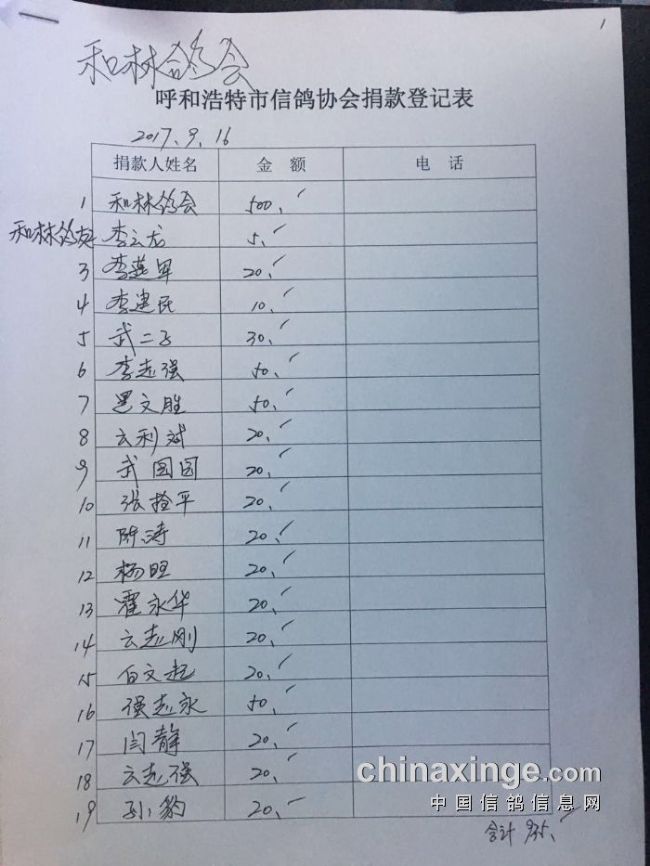 1
和林鸽会
呼和浩特市信鸽协会捐款登记表
2017.9.16
捐款人姓名 金 额 电 话
1 和林鸽会 500.
和林鸽友 李云龙 5.
3 李燕军 20.
4 李建民 10.
5 武二子 30.
6 李志强 50.
7 文胜 50.
8 云利斌 20.
9 武国国 20.
10 张拴平 20.
11 陈涛 20.
12 杨旺 20.
13 霍永华 20.
14 云志刚 20.
15 白文起 20.
16 强志永 50.
17 闫静 20.
18 云志强 20.
19 孙豹 20.
合计 935.
chinaxinge.com
中国信鸽信息网